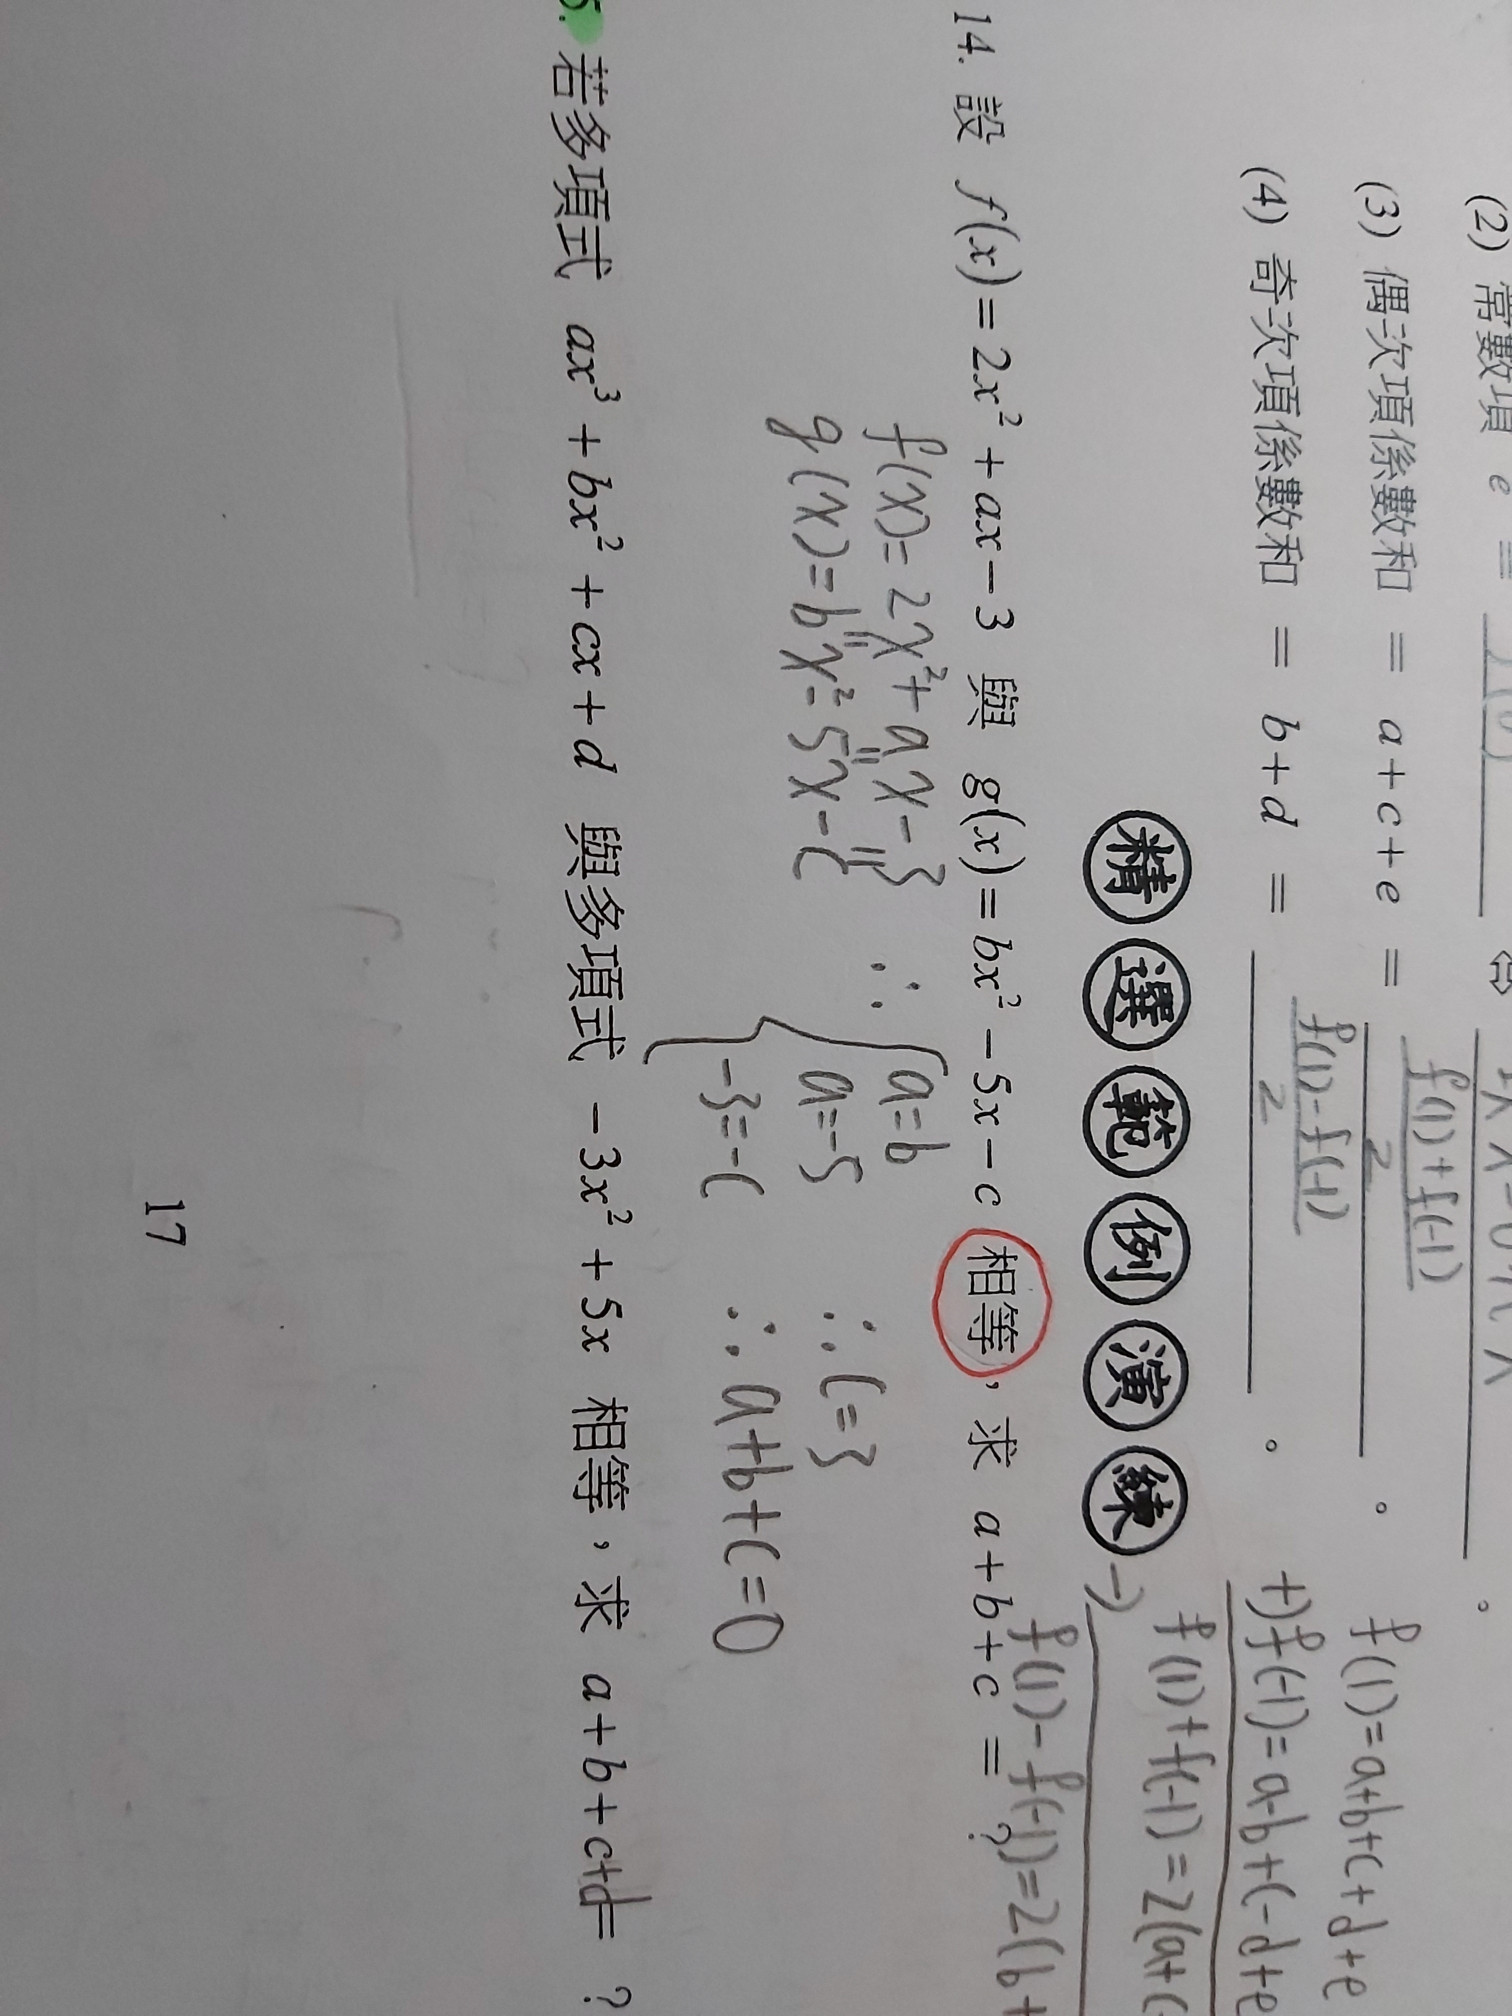 (2) 常數項 e =
(3) 偶次項係數和 = a+c+e = f(1)+f(-1) / 2 。
(4) 奇次項係數和 = b+d = f(1)-f(-1) / 2 。
f(1)=a+b+c+d+e
+)f(-1)=a-b+c-d+e
f(1)+f(-1)=2(a+c
-)
f(1)-f(-1)=2(b+
精選範例演練
14. 設 f(x)=2x²+ax-3 與 g(x)=bx²-5x-c 相等,求 a+b+c=?
f(x)=2x²+ax-3
g(x)=bx²-5x-c
∴ a=b
a=-5
-3=-c
∴c=3
∴a+b+c=0
5. 若多項式 ax³+bx²+cx+d 與多項式 -3x²+5x 相等,求 a+b+c+d=?
17